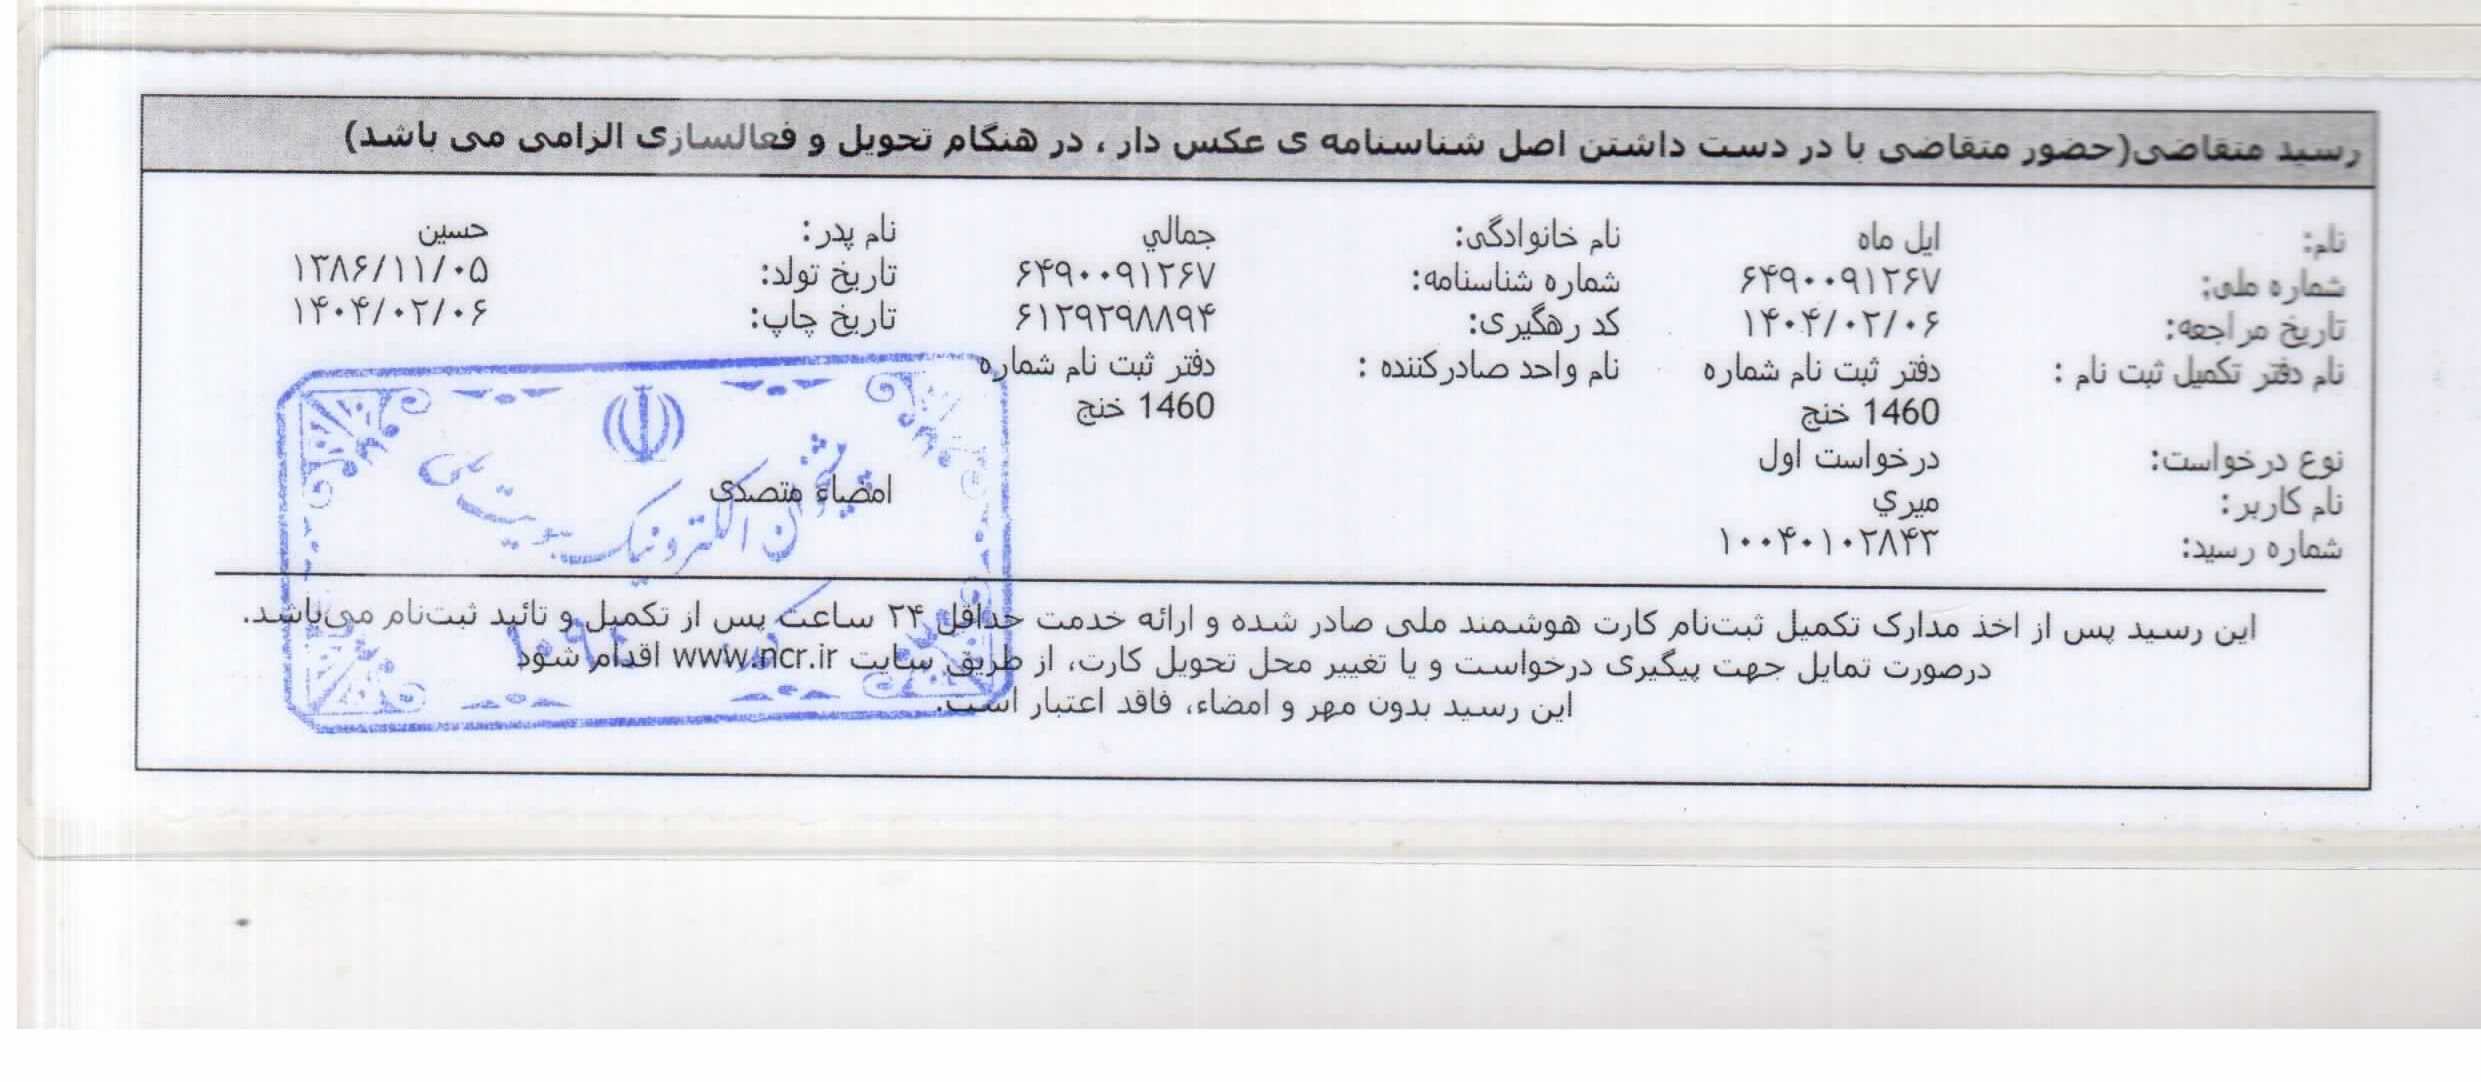 رسید متقاضی(حضور متقاضی با در دست داشتن اصل شناسنامه ی عکس دار ، در هنگام تحویل و فعالسازی الزامی می باشد)
نام: ایل ماه نام خانوادگی: جمالي نام پدر: حسین
شماره ملی: ۶۴۹۰۰۹۱۲۶۷ شماره شناسنامه: ۶۴۹۰۰۹۱۲۶۷ تاریخ تولد: ۱۳۸۶/۱۱/۰۵
تاریخ مراجعه: ۱۴۰۴/۰۲/۰۶ کد رهگیری: ۶۱۲۹۲۹۸۸۹۴ تاریخ چاپ: ۱۴۰۴/۰۲/۰۶
نام دفتر تکمیل ثبت نام : دفتر ثبت نام شماره نام واحد صادرکننده : دفتر ثبت نام شماره
1460 خنج 1460 خنج
نوع درخواست: درخواست اول
نام کاربر: میري امضاء متصدی
شماره رسید: ۱۰۰۴۰۱۰۲۸۴۳
این رسید پس از اخذ مدارک تکمیل ثبت‌نام کارت هوشمند ملی صادر شده و ارائه خدمت حداقل ۲۴ ساعت پس از تکمیل و تائید ثبت‌نام می‌باشد.
درصورت تمایل جهت پیگیری درخواست و یا تغییر محل تحویل کارت، از طریق سایت www.ncr.ir اقدام شود
این رسید بدون مهر و امضاء، فاقد اعتبار است.